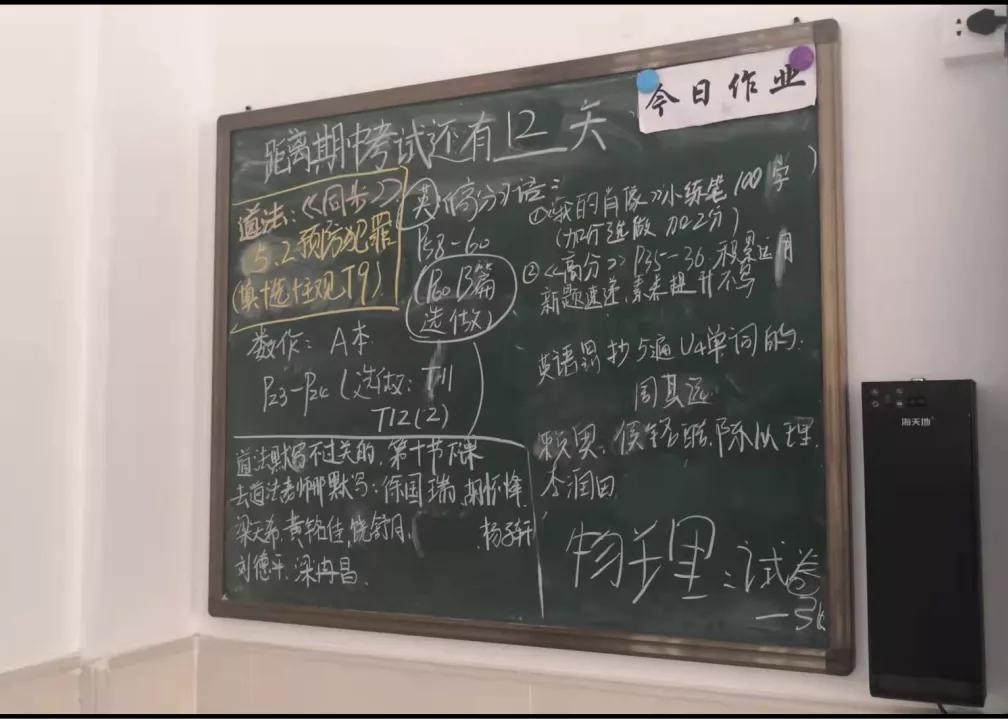 今日作业
距离期中考试还有12天
道法:《同步》
5.2预防犯罪
(填+选+主观T9)
英《高分》
P58-60
(P60 B篇
选做)
语:
①《我的肖像》小练笔100字
(加分选做 加2分)
②《高分》P35-36,积累运用
新题速递,素养提升不写
数作:A本
P23-P24(选做:T11
T12(2)
英语 抄5遍U4单词的:
周其远
侯铭
李润田
道法默写不过关的,第十节下课
去道法老师那默写:徐国瑞,胡怀烽
梁天希,黄铭佳,饶舒月,
杨子轩
刘德平,梁冉昌
物理:试卷
一张
海天地